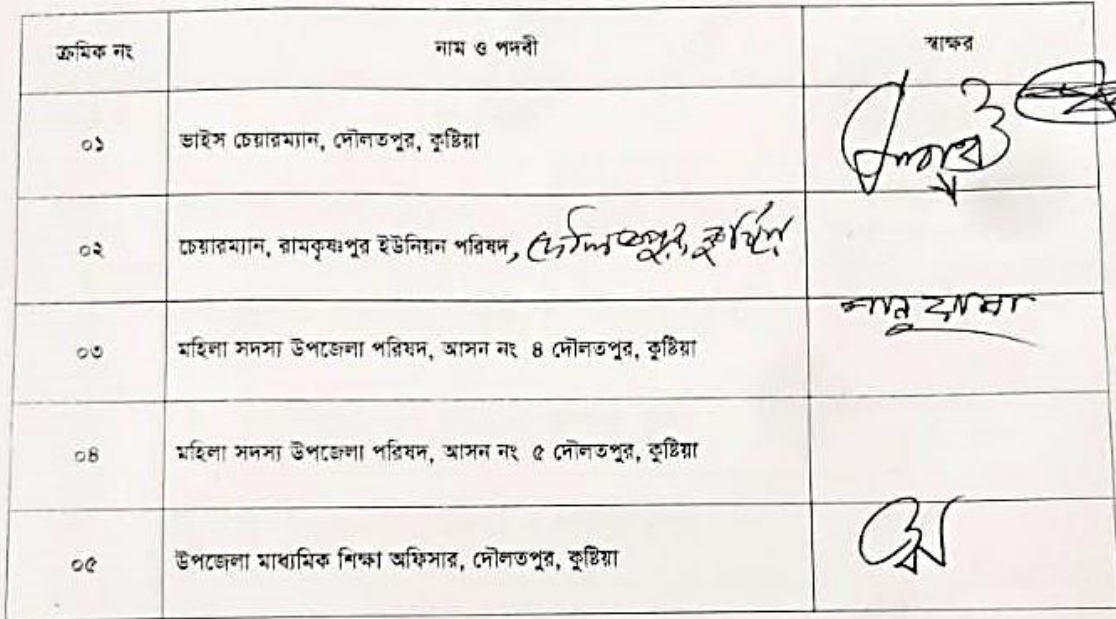 ক্রমিক নং নাম ও পদবী স্বাক্ষর
০১ ভাইস চেয়ারম্যান, দৌলতপুর, কুষ্টিয়া
০২ চেয়ারম্যান, রামকৃষ্ণপুর ইউনিয়ন পরিষদ, দৌলতপুর, কুষ্টিয়া
০৩ মহিলা সদস্য উপজেলা পরিষদ, আসন নং ৪ দৌলতপুর, কুষ্টিয়া
০৪ মহিলা সদস্য উপজেলা পরিষদ, আসন নং ৫ দৌলতপুর, কুষ্টিয়া
০৫ উপজেলা মাধ্যমিক শিক্ষা অফিসার, দৌলতপুর, কুষ্টিয়া